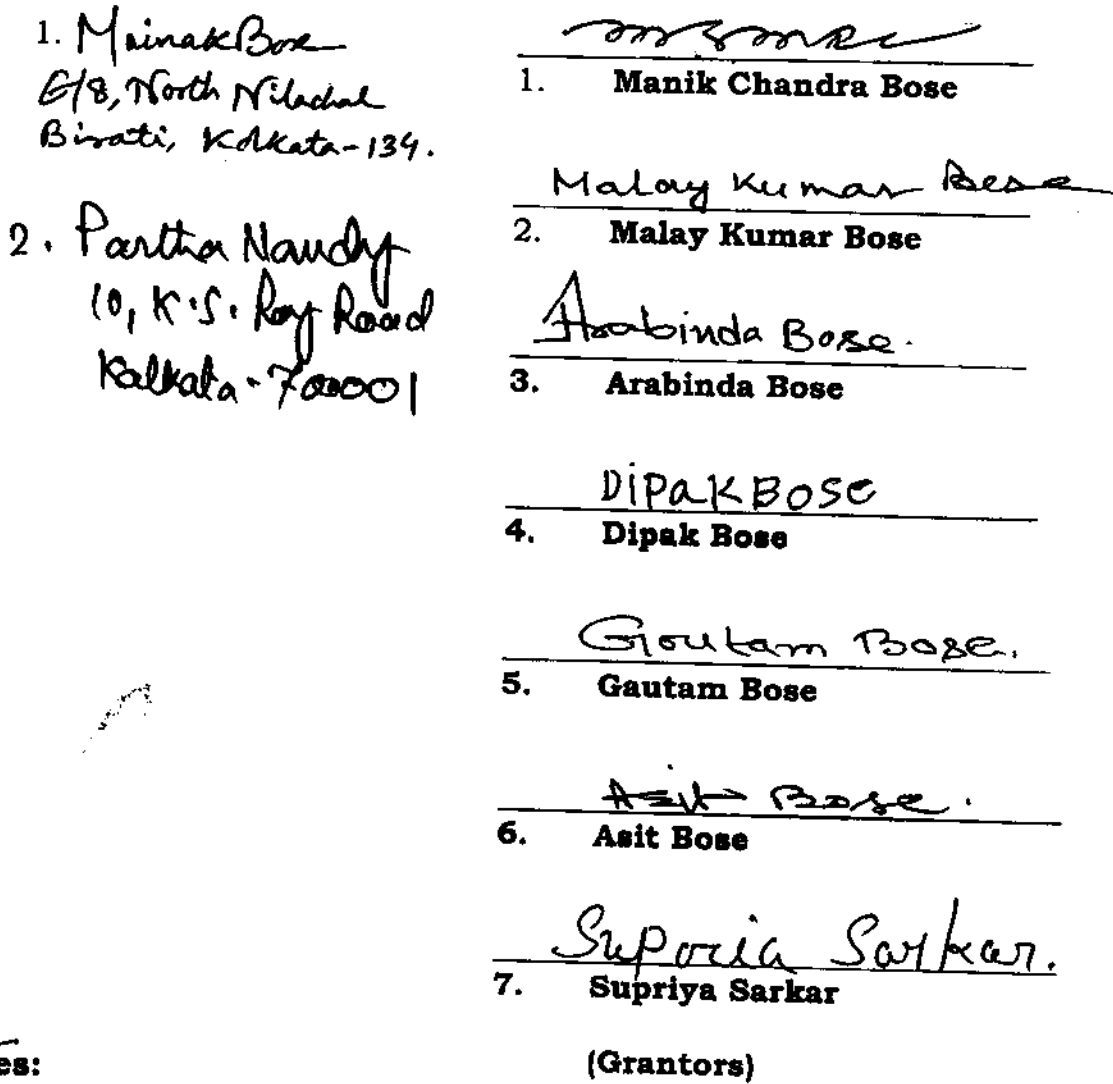 1. Mainak Bose
E/8, North Nilachal
Birati, Kolkata-134.
2. Partha Nandy
10, K.S. Roy Road
Kolkata-700001
1. Manik Chandra Bose
Malay Kumar Bose
2. Malay Kumar Bose
Arabinda Bose.
3. Arabinda Bose
Dipak Bose
4. Dipak Bose
Goutam Bose.
5. Gautam Bose
Asit Bose.
6. Asit Bose
Suporia Sarkar.
7. Supriya Sarkar
es:
(Grantors)